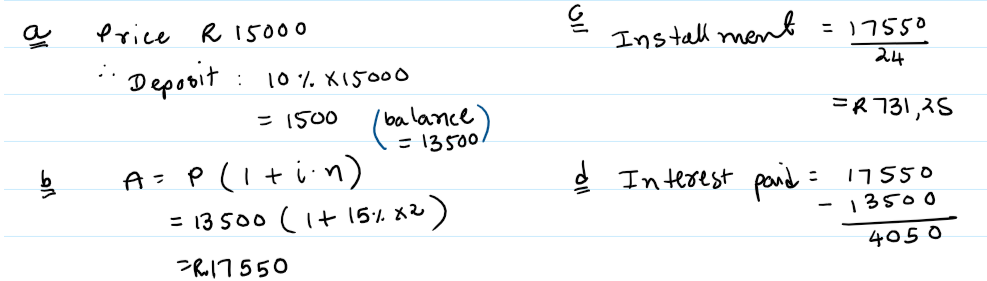 a Price R 15000
∴ Deposit : 10 % × 15000
= 1500 (balance
= 13500)
b A = P ( 1 + i · n )
= 13500 ( 1 + 15% × 2 )
= R17550
c Installment = 17550
24
= R 731,25
d Interest paid = 17550
- 13500
4050